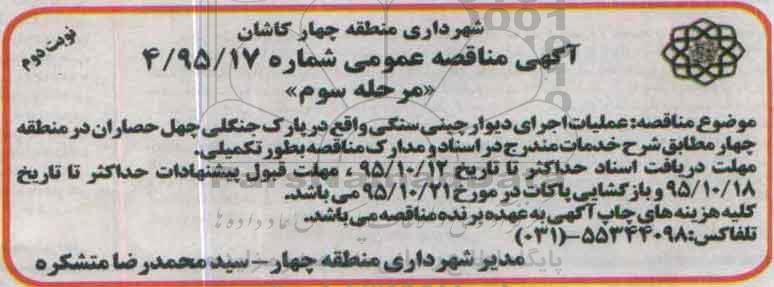 شهرداری منطقه چهار کاشان
نوبت دوم
آگهی مناقصه عمومی شماره ۴/۹۵/۱۷
«مرحله سوم»
موضوع مناقصه: عملیات اجرای دیوارچینی سنگی واقع در پارک جنگلی چهل حصاران در منطقه
چهار مطابق شرح خدمات مندرج در اسناد و مدارک مناقصه بطور تکمیلی.
مهلت دریافت اسناد حداکثر تا تاریخ ۹۵/۱۰/۱۲ ، مهلت قبول پیشنهادات حداکثر تا تاریخ
۹۵/۱۰/۱۸ و بازگشایی پاکات در مورخ ۹۵/۱۰/۲۱ می باشد.
کلیه هزینه های چاپ آگهی به عهده برنده مناقصه می باشد..
تلفاکس: ۵۵۳۴۴۰۹۸-(۰۳۱)
مدیر شهرداری منطقه چهار – سید محمدرضا متشکره